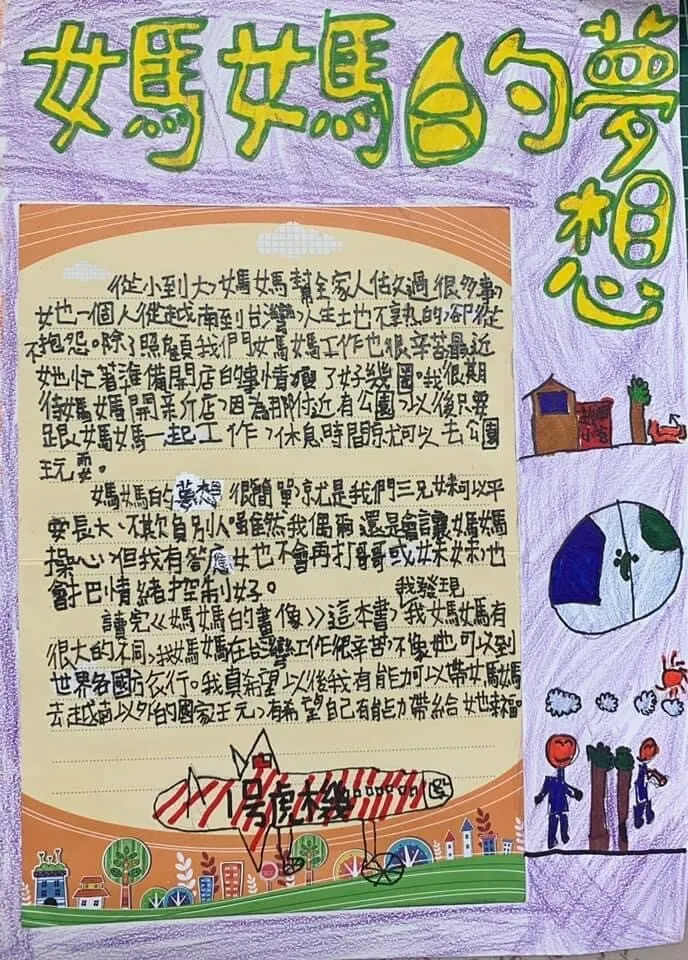 媽媽的夢想
從小到大，媽媽幫全家人做過很多事，
她一個人從越南到台灣，人生土也不熟的，卻從
不抱怨。除了照顧我們，媽媽工作也很辛苦最近
她忙著準備開店的事情瘦了好幾圈。我很期
待媽媽開新店，因為那附近有公園，以後只要
跟媽媽一起工作，休息時間就可以去公園
玩耍。
媽媽的夢想很簡單，就是我們三兄妹可以平
安長大、不欺負別人。雖然我偶爾還是會讓媽媽
操心，但我有答應她不會再打哥哥或妹妹，也
會把情緒控制好。
我發現
讀完《媽媽的畫像》這本書，我媽媽有
很大的不同，我媽媽在台灣工作很辛苦，不像她可以到
世界各國旅行。我真希望以後我有能力可以帶媽媽
去越南以外的國家玩，有希望自己有能力帶給她幸福。
1号虎機